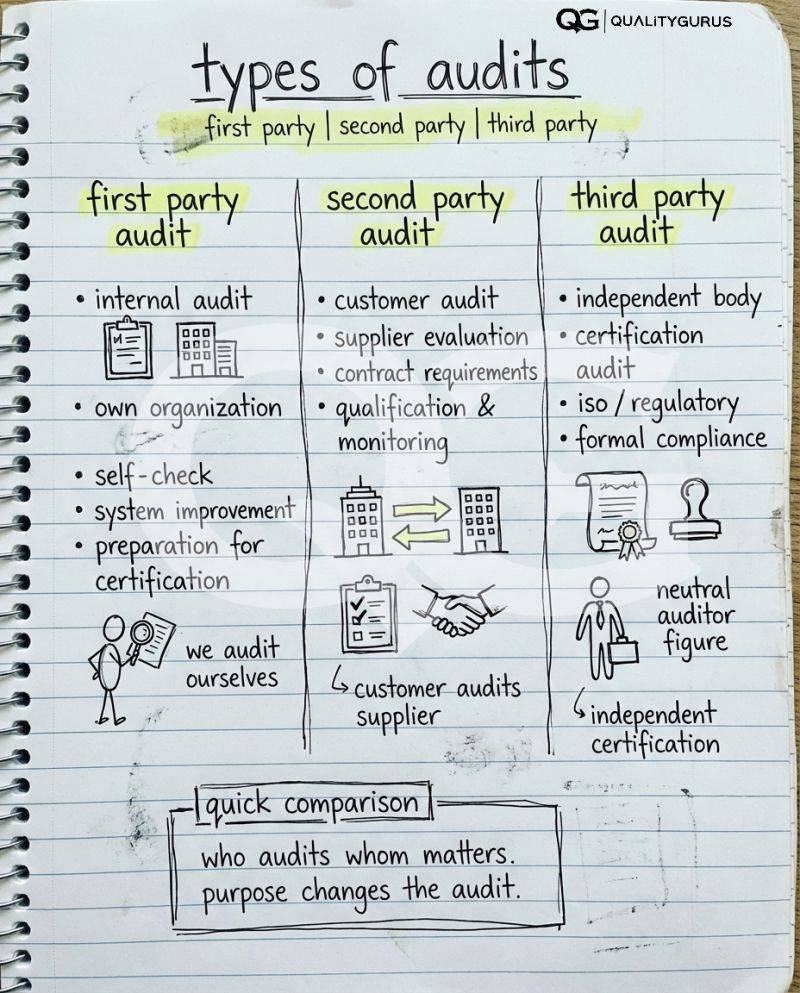 QG | QUALITYGURUS
types of audits
first party | second party | third party
first party
audit
• internal audit
• own organization
• self-check
• system improvement
• preparation for
certification
we audit
ourselves
second party
audit
• customer audit
• supplier evaluation
• contract requirements
• qualification &
monitoring
↳ customer audits
supplier
third party
audit
• independent body
• certification
audit
• iso / regulatory
• formal compliance
neutral
auditor
figure
↳ independent
certification
quick comparison
who audits whom matters.
purpose changes the audit.
QG